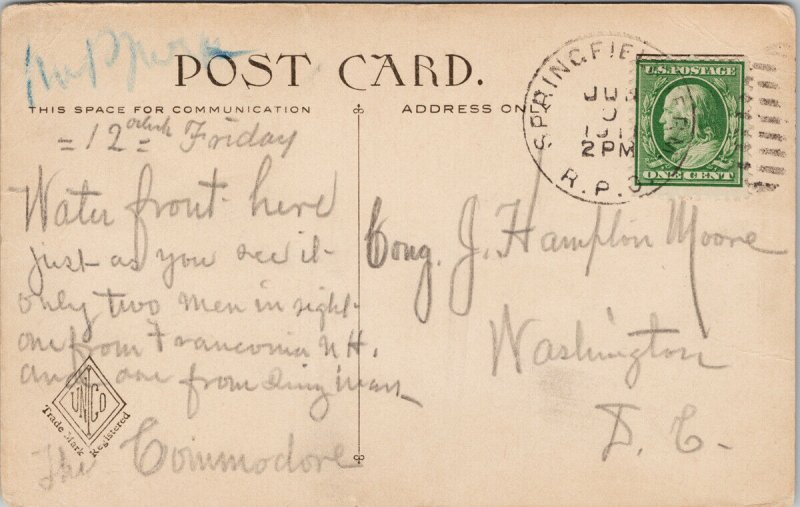 POST CARD.
THIS SPACE FOR COMMUNICATION
ADDRESS ON
= 12 o'clock = Friday
Water front here
just as you see it -
only two men in sight -
one from Franconia N.H.
and one from
The Commodore
UNCO
Trade Mark Registered
SPRINGFIE
JU
191
2 PM
R.P.O.
U.S. POSTAGE
ONE CENT
Cong. J. Hampton Moore
Washington
D. C.